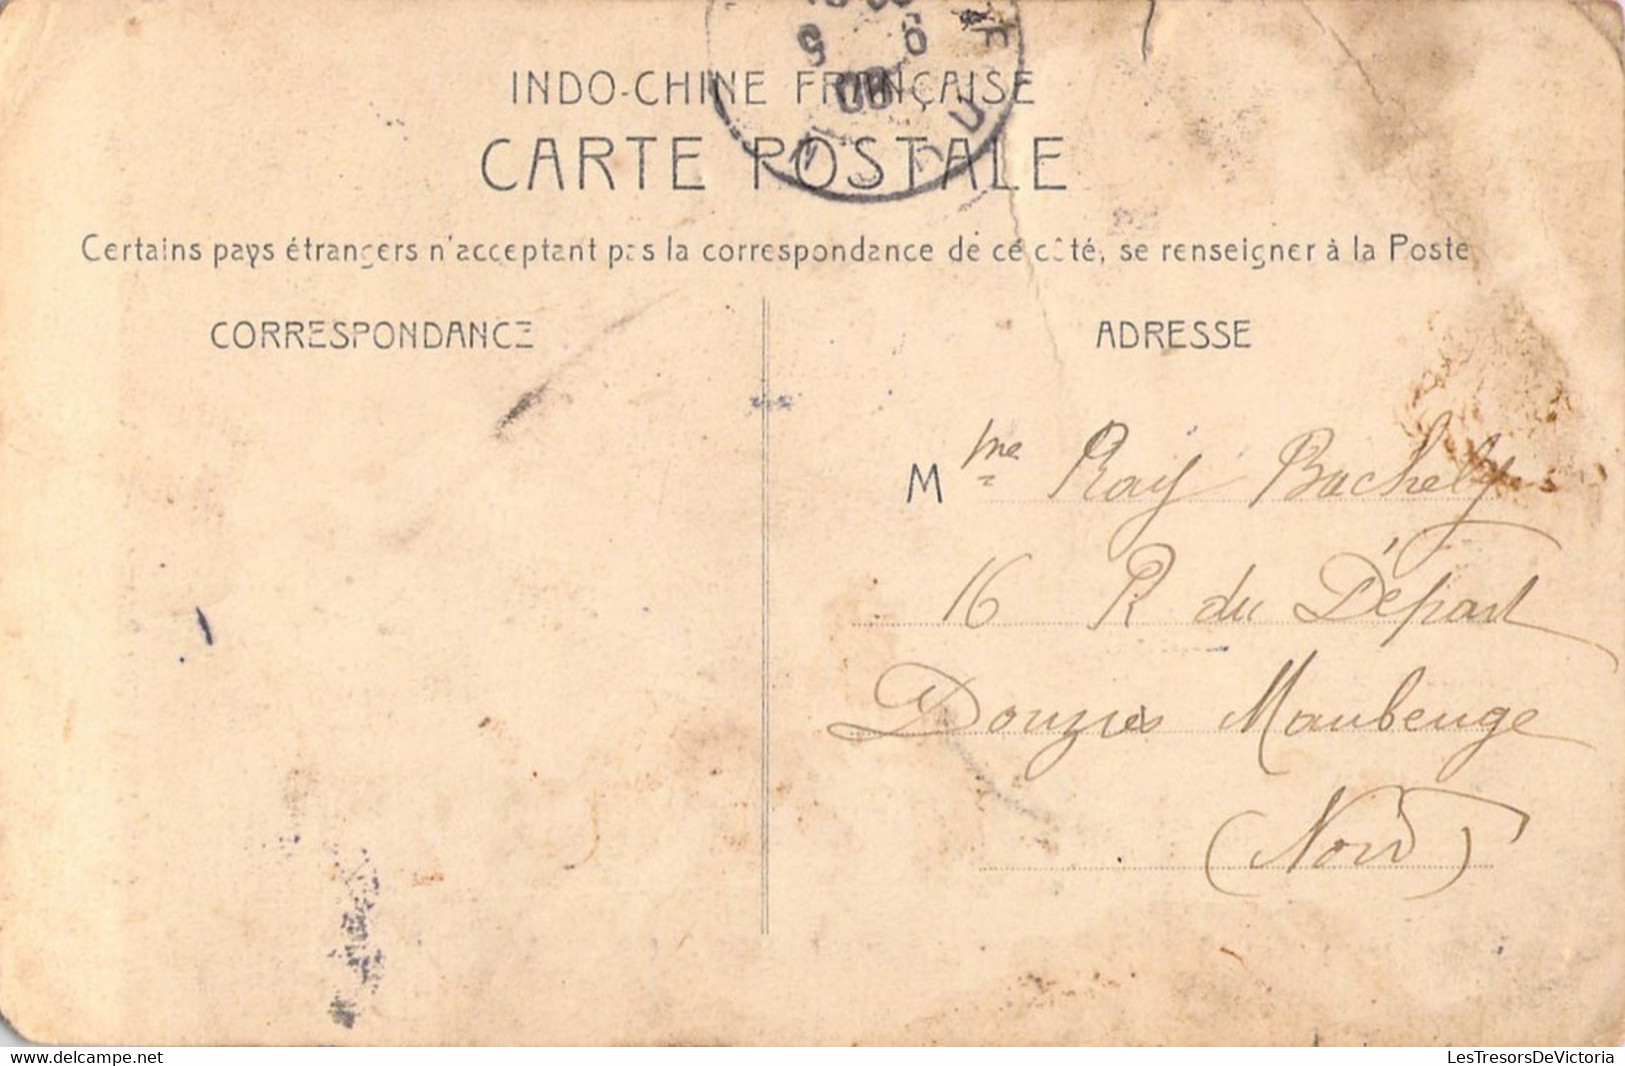 INDO-CHINE FRANÇAISE
CARTE POSTALE
Certains pays étrangers n'acceptant pas la correspondance de ce côté, se renseigner à la Poste
CORRESPONDANCE
ADRESSE
Mme Ray Bachely
16 R du Départ
Douzies Maubeuge
(Nord)
delcampe.net
LesTresorsDeVictoria